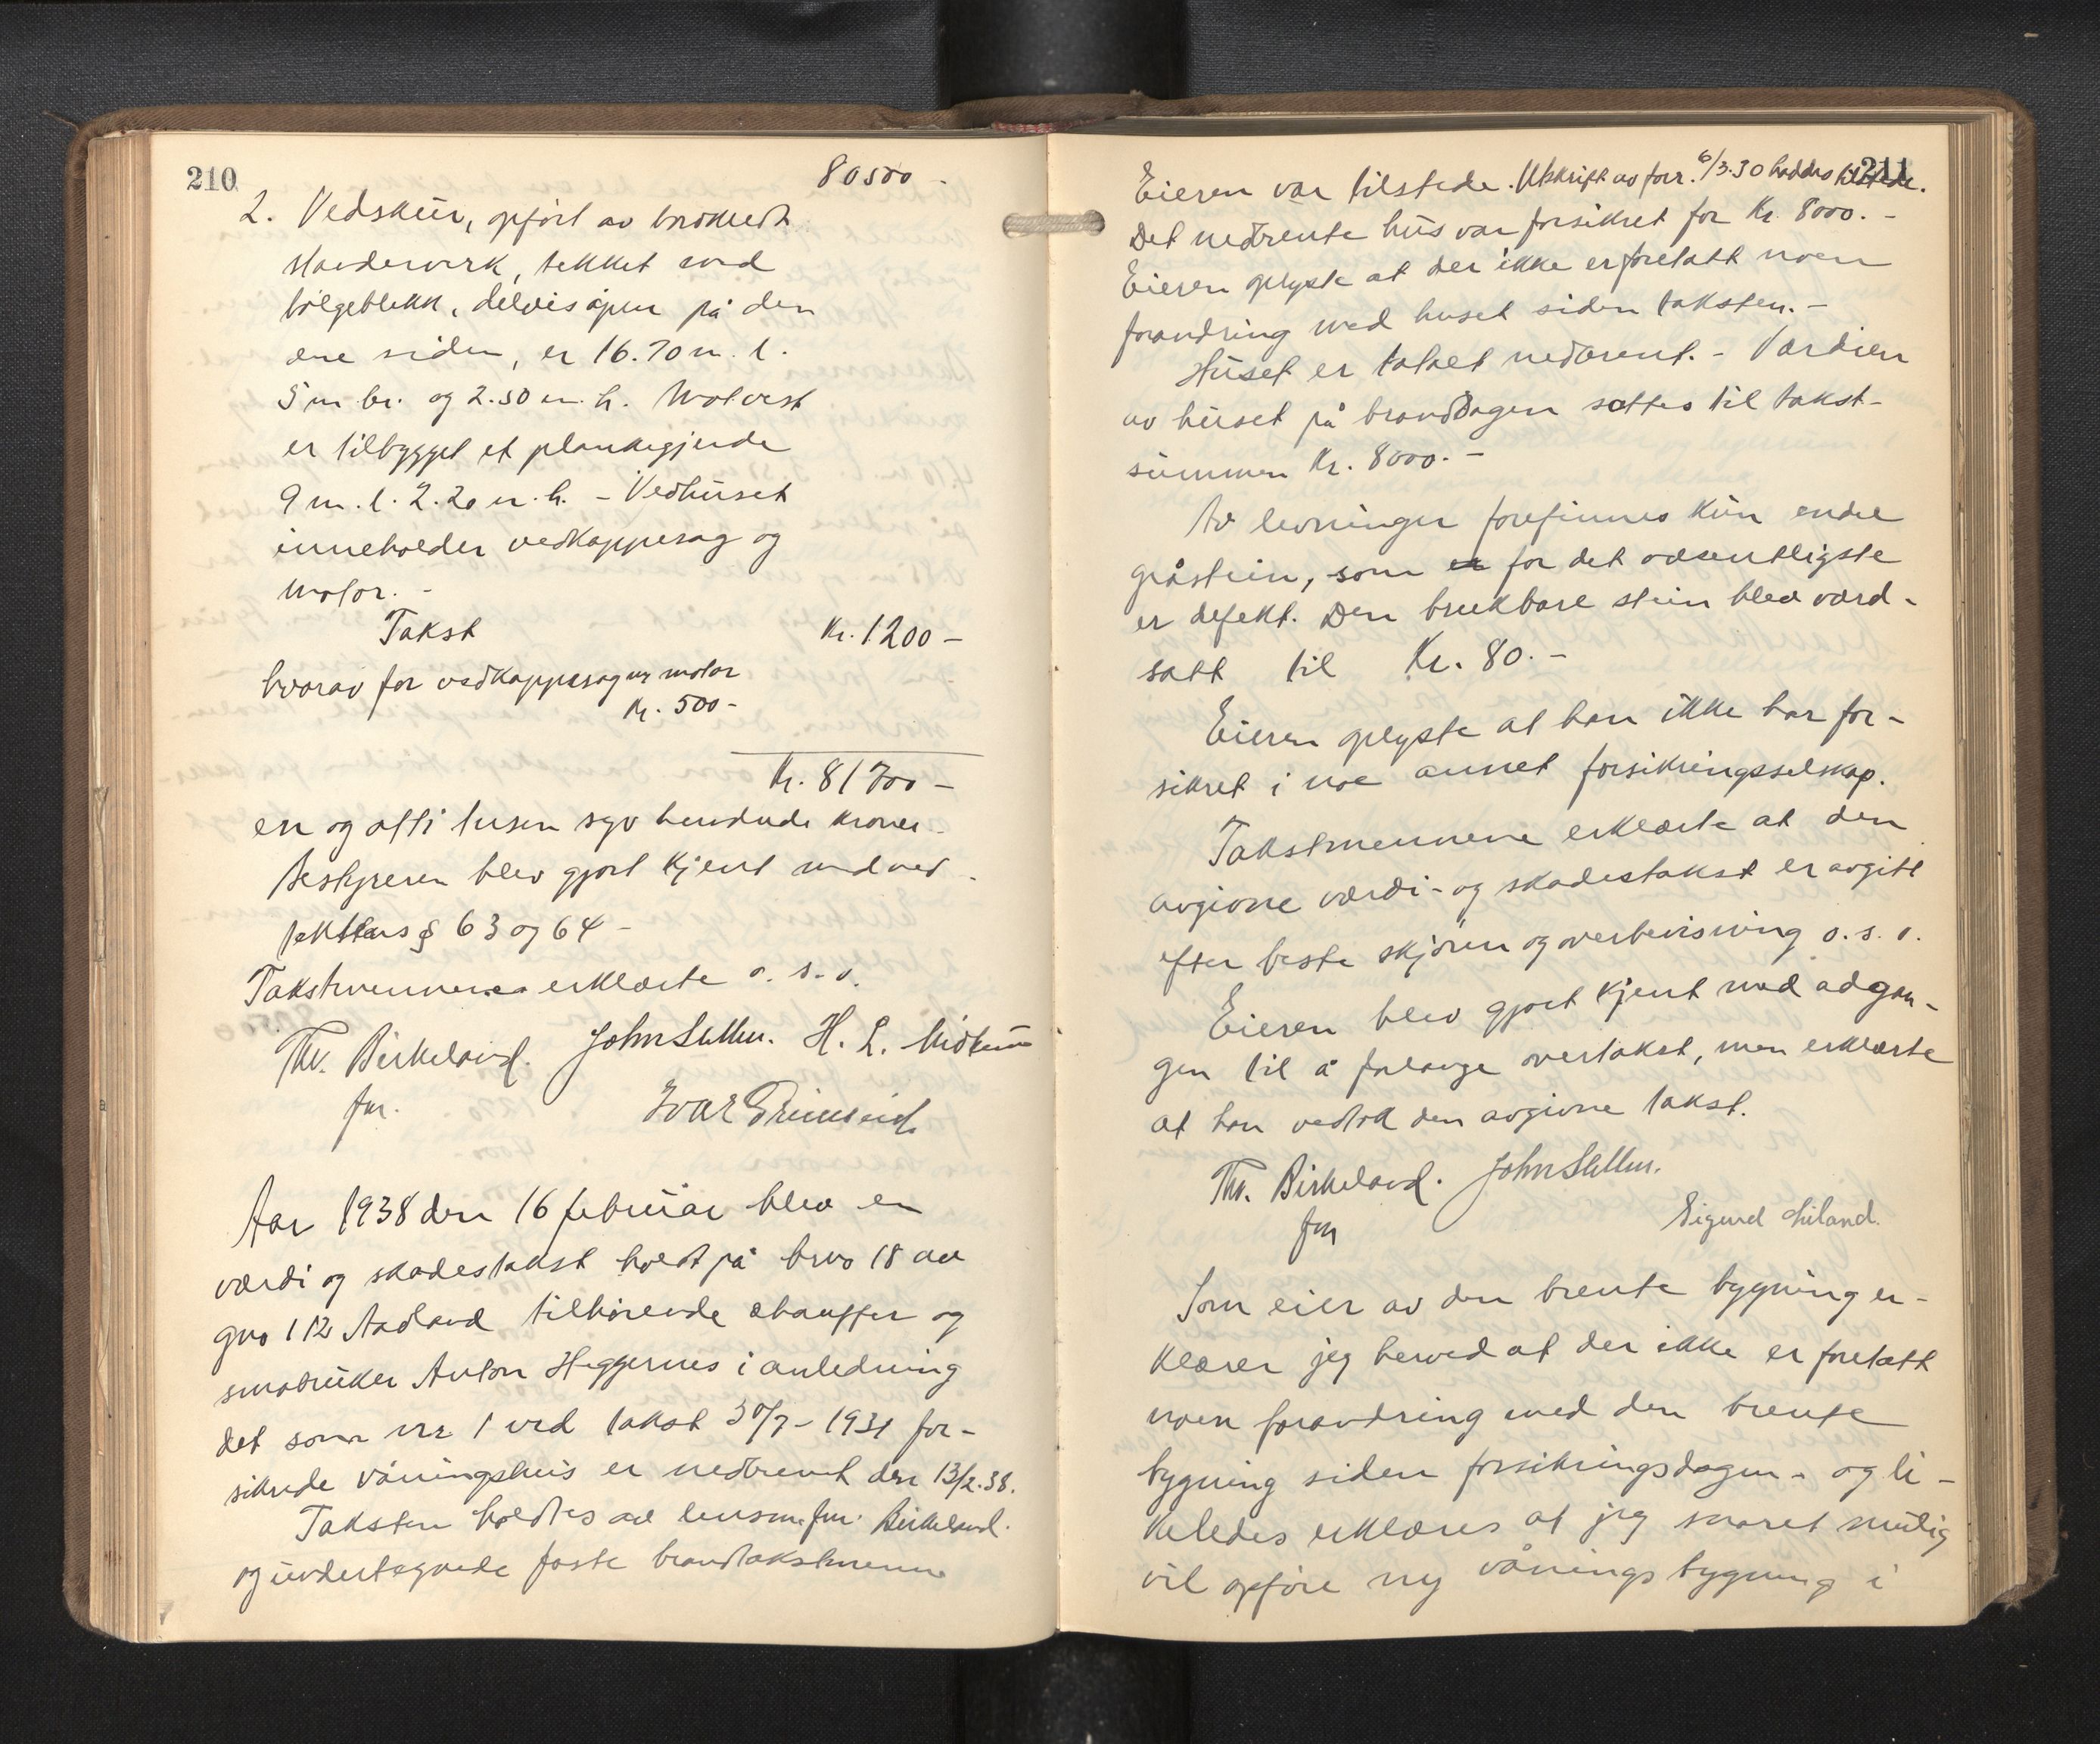 210
80500 -
2. Vedskur, opført av bordkledt
stenderverk, tekket med
bølgeblekk, delvis åpen på den
ene siden, er 16.70 m. l.
5 m. br. og 2.50 m. h. Mot vest
er tilbygget et plankegjerde
9 m. l. 2.20 m. h. - Vedhuset
inneholder vedkappesag og
motor. -
Takst Kr. 1200 -
hvorav for vedkappesag og motor
Kr. 500 -
Kr. 81700 -
en og otti tusen syv hundrede kroner.
Bestyreren blev gjort kjent med ved-
tekters § 63 og 64 -
Takstmennene erklærte o. s. v.
Thv. Birkeland. John H. L.
fm. Ivar
Aar 1938 den 16 februar blev en
værdi og skadestakst holdt på brno 18 av
gno 112 Aadland tilhørende chauffer og
småbruker Anton Heggernes i anledning
det som nr 1 ved takst 30/7 - 1931 for-
sikrede våningshus er nedbrent den 13/2.38.
Taksten holdtes av lensm.fm. Birkeland.
og undertegnede faste brandtakstmenn
211
Eieren var tilstede. Utskrift av forr. 6/3.30 haddes tilstede.
Det nedbrente hus var forsikret for Kr. 8000. -
Eieren oplyste at der ikke er foretatt noen
forandring med huset siden taksten. -
Huset er totalt nedbrent. - Værdien
av huset på branddagen sættes til takst-
summen Kr. 8000. -
Av levninger forefinnes kun endel
gråstein, som er for det væsentligste
er defekt. Den brukbare stein blev værd-
satt til Kr. 80. -
Eieren oplyste at han ikke har for-
sikret i noe annet forsikringsselskap.
Takstmennene erklærte at den
avgivne værdi- og skadestakst er avgitt
efter beste skjønn og overbevisning o. s. v.
Eieren blev gjort kjent med adgan-
gen til å forlange overtakst, men erklærte
at han vedtok den avgivne takst.
Thv. Birkeland. John
fm Sigurd
Som eier av den brente bygning er-
klærer jeg herved at der ikke er foretatt
noen forandring med den brente
bygning siden forsikringsdagen - og li-
keledes erklæres at jeg snarest mulig
vil opføre ny våningsbygning i